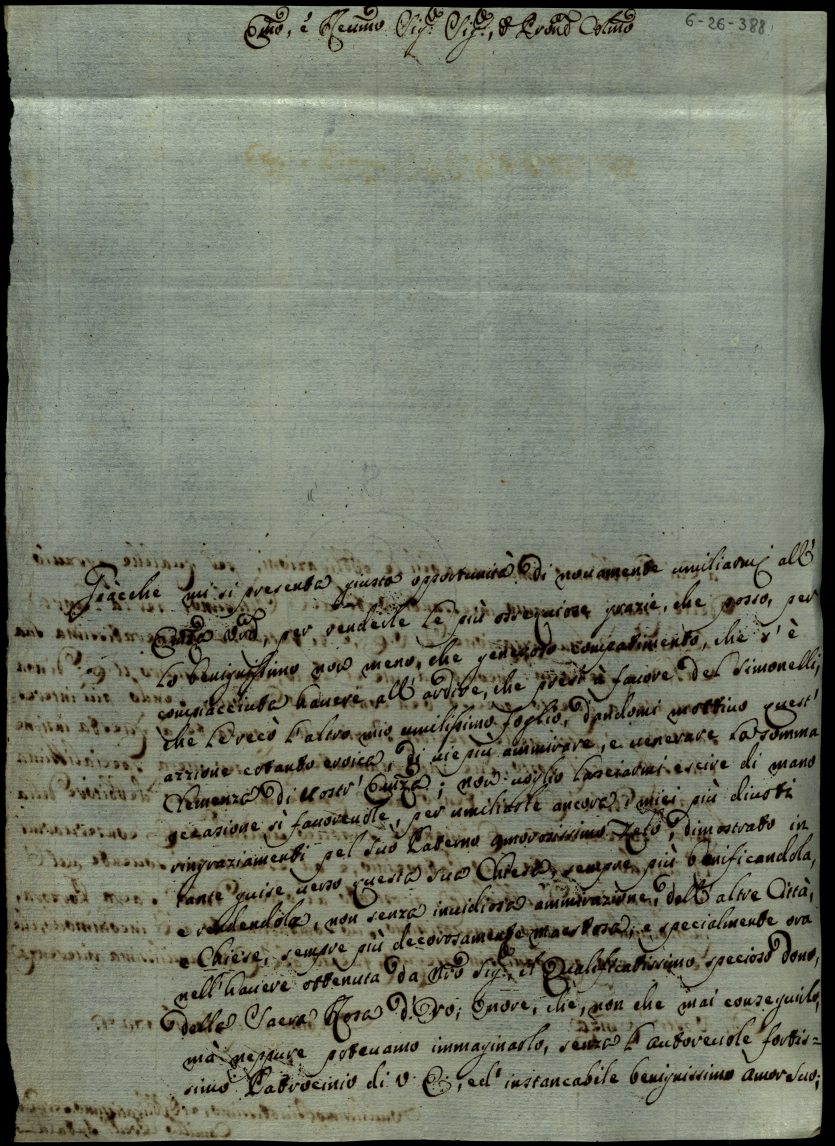 6-26-388
Emo, è Revmo Sig.r Sig.r, e Pron Colmo
Giàcche mi si presenta giusta opportunità di novamente umiliarmi all'
Emza Vra, per renderle le più ossequiose grazie, che posso, per
lo benignissimo non meno, che generoso compatimento, che s'è
compiacciuta havere all'ardire, che presi à favore del Simonelli,
che le recò l'altro mio umilissimo foglio, dandomi mottivo quest'
azzione cotanto eroica, di vie più ammirare, e venerare la somma
Clemenza di Vostr' Emza; non voglio lasciarmi escire di mano
occasione sì favorevole, per umiliarle ancora i miei più divoti
ringraziamenti pel suo Paterno amorosissimo Zelo, dimostrato in
tante guise verso questa sua Chiesa, sempre più benificandola,
e rendendola, non senza invidiosa ammirazione, dell'altre Città,
e Chiese, sempre più decorosamente maestosa; e specialmente ora
nell'havere ottenuta da Nro Sig.re il Qualificatissimo specioso dono,
della Sacra Rosa d'Oro; Onore, che, non che mai conseguirlo,
mà neppure potevamo immaginarlo, senza l'autorevole fortis=
simo Patrocinio di V. E., ed' instancabile benignissimo amor suo;